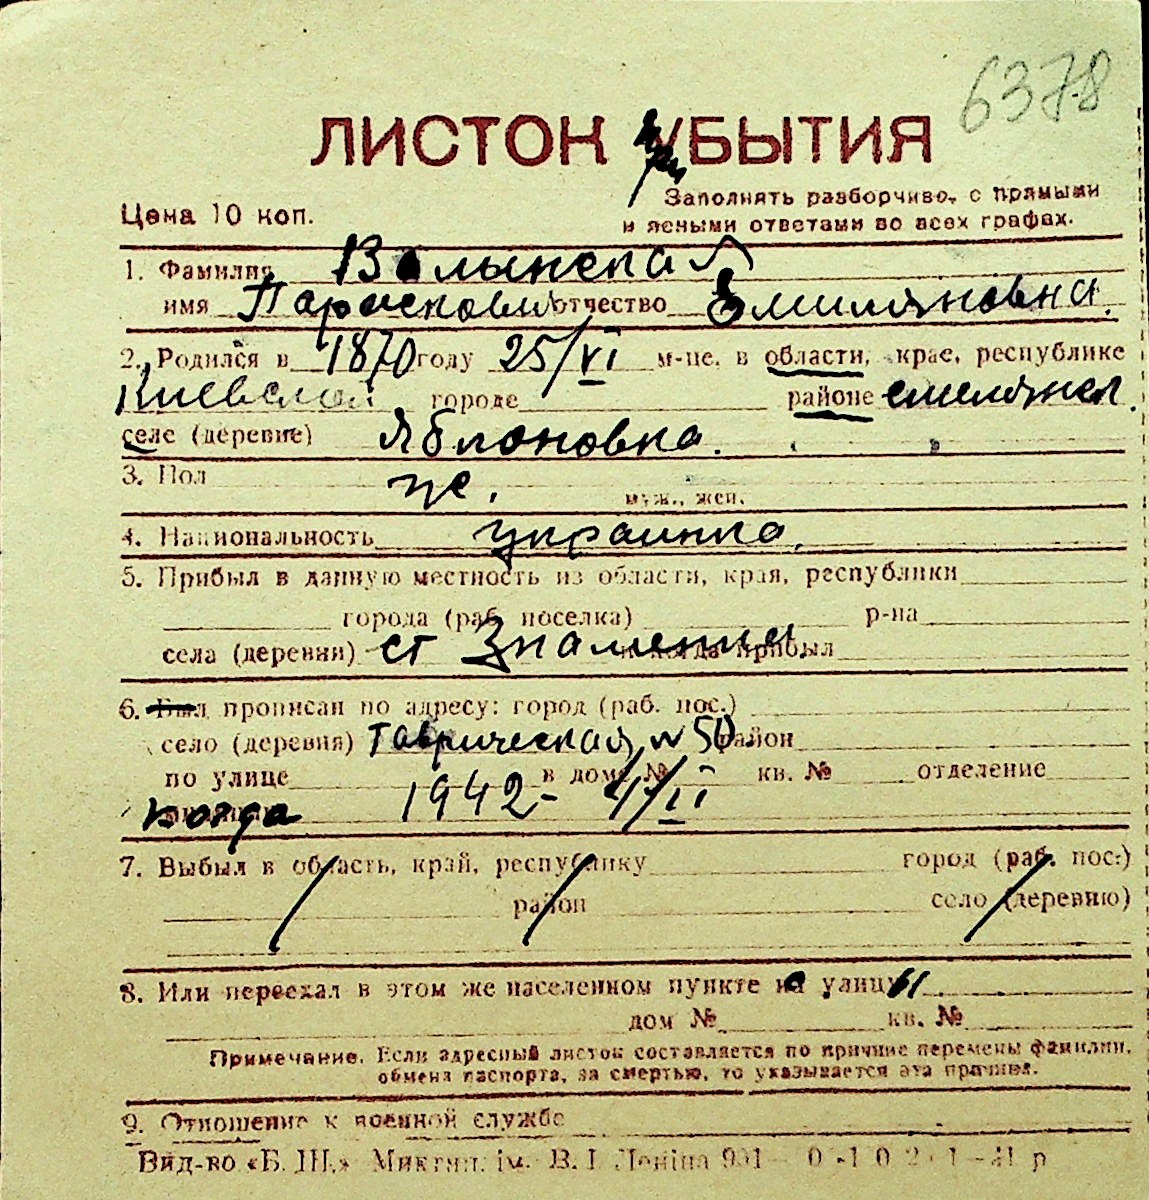 6378
ЛИСТОК УБЫТИЯ
при
Цена 10 коп.
Заполнять разборчиво, с прямыми
и ясными ответами во всех графах.
1. Фамилия Волынская
имя Парасковия отчество Емиляновна.
2. Родился в 1870 году 25/VI м-це, в области, крае, республике
Киевской городе районе
селе (деревне) Яблоновка.
3. Пол ж. муж., жен.
4. Национальность украинка.
5. Прибыл в данную местность из области, края, республики
города (раб. поселка) р-на
села (деревни) ст Знаменка и когда прибыл
6. Был прописан по адресу: город (раб. пос.)
село (деревня) Таврическая, № 50 район
по улице в доме № кв. № отделение
когда 1942 - 4/II
7. Выбыл в область, край, республику город (раб. пос.)
район село (деревню)
8. Или переехал в этом же населенном пункте на улицу
дом № кв. №
Примечание. Если адресный листок составляется по причине перемены фамилии,
обмена паспорта, за смертью, то указывается эта причина.
9. Отношение к военной службе
Вид-во «Б. Ш.» Миктип. ім. В. І. Леніна